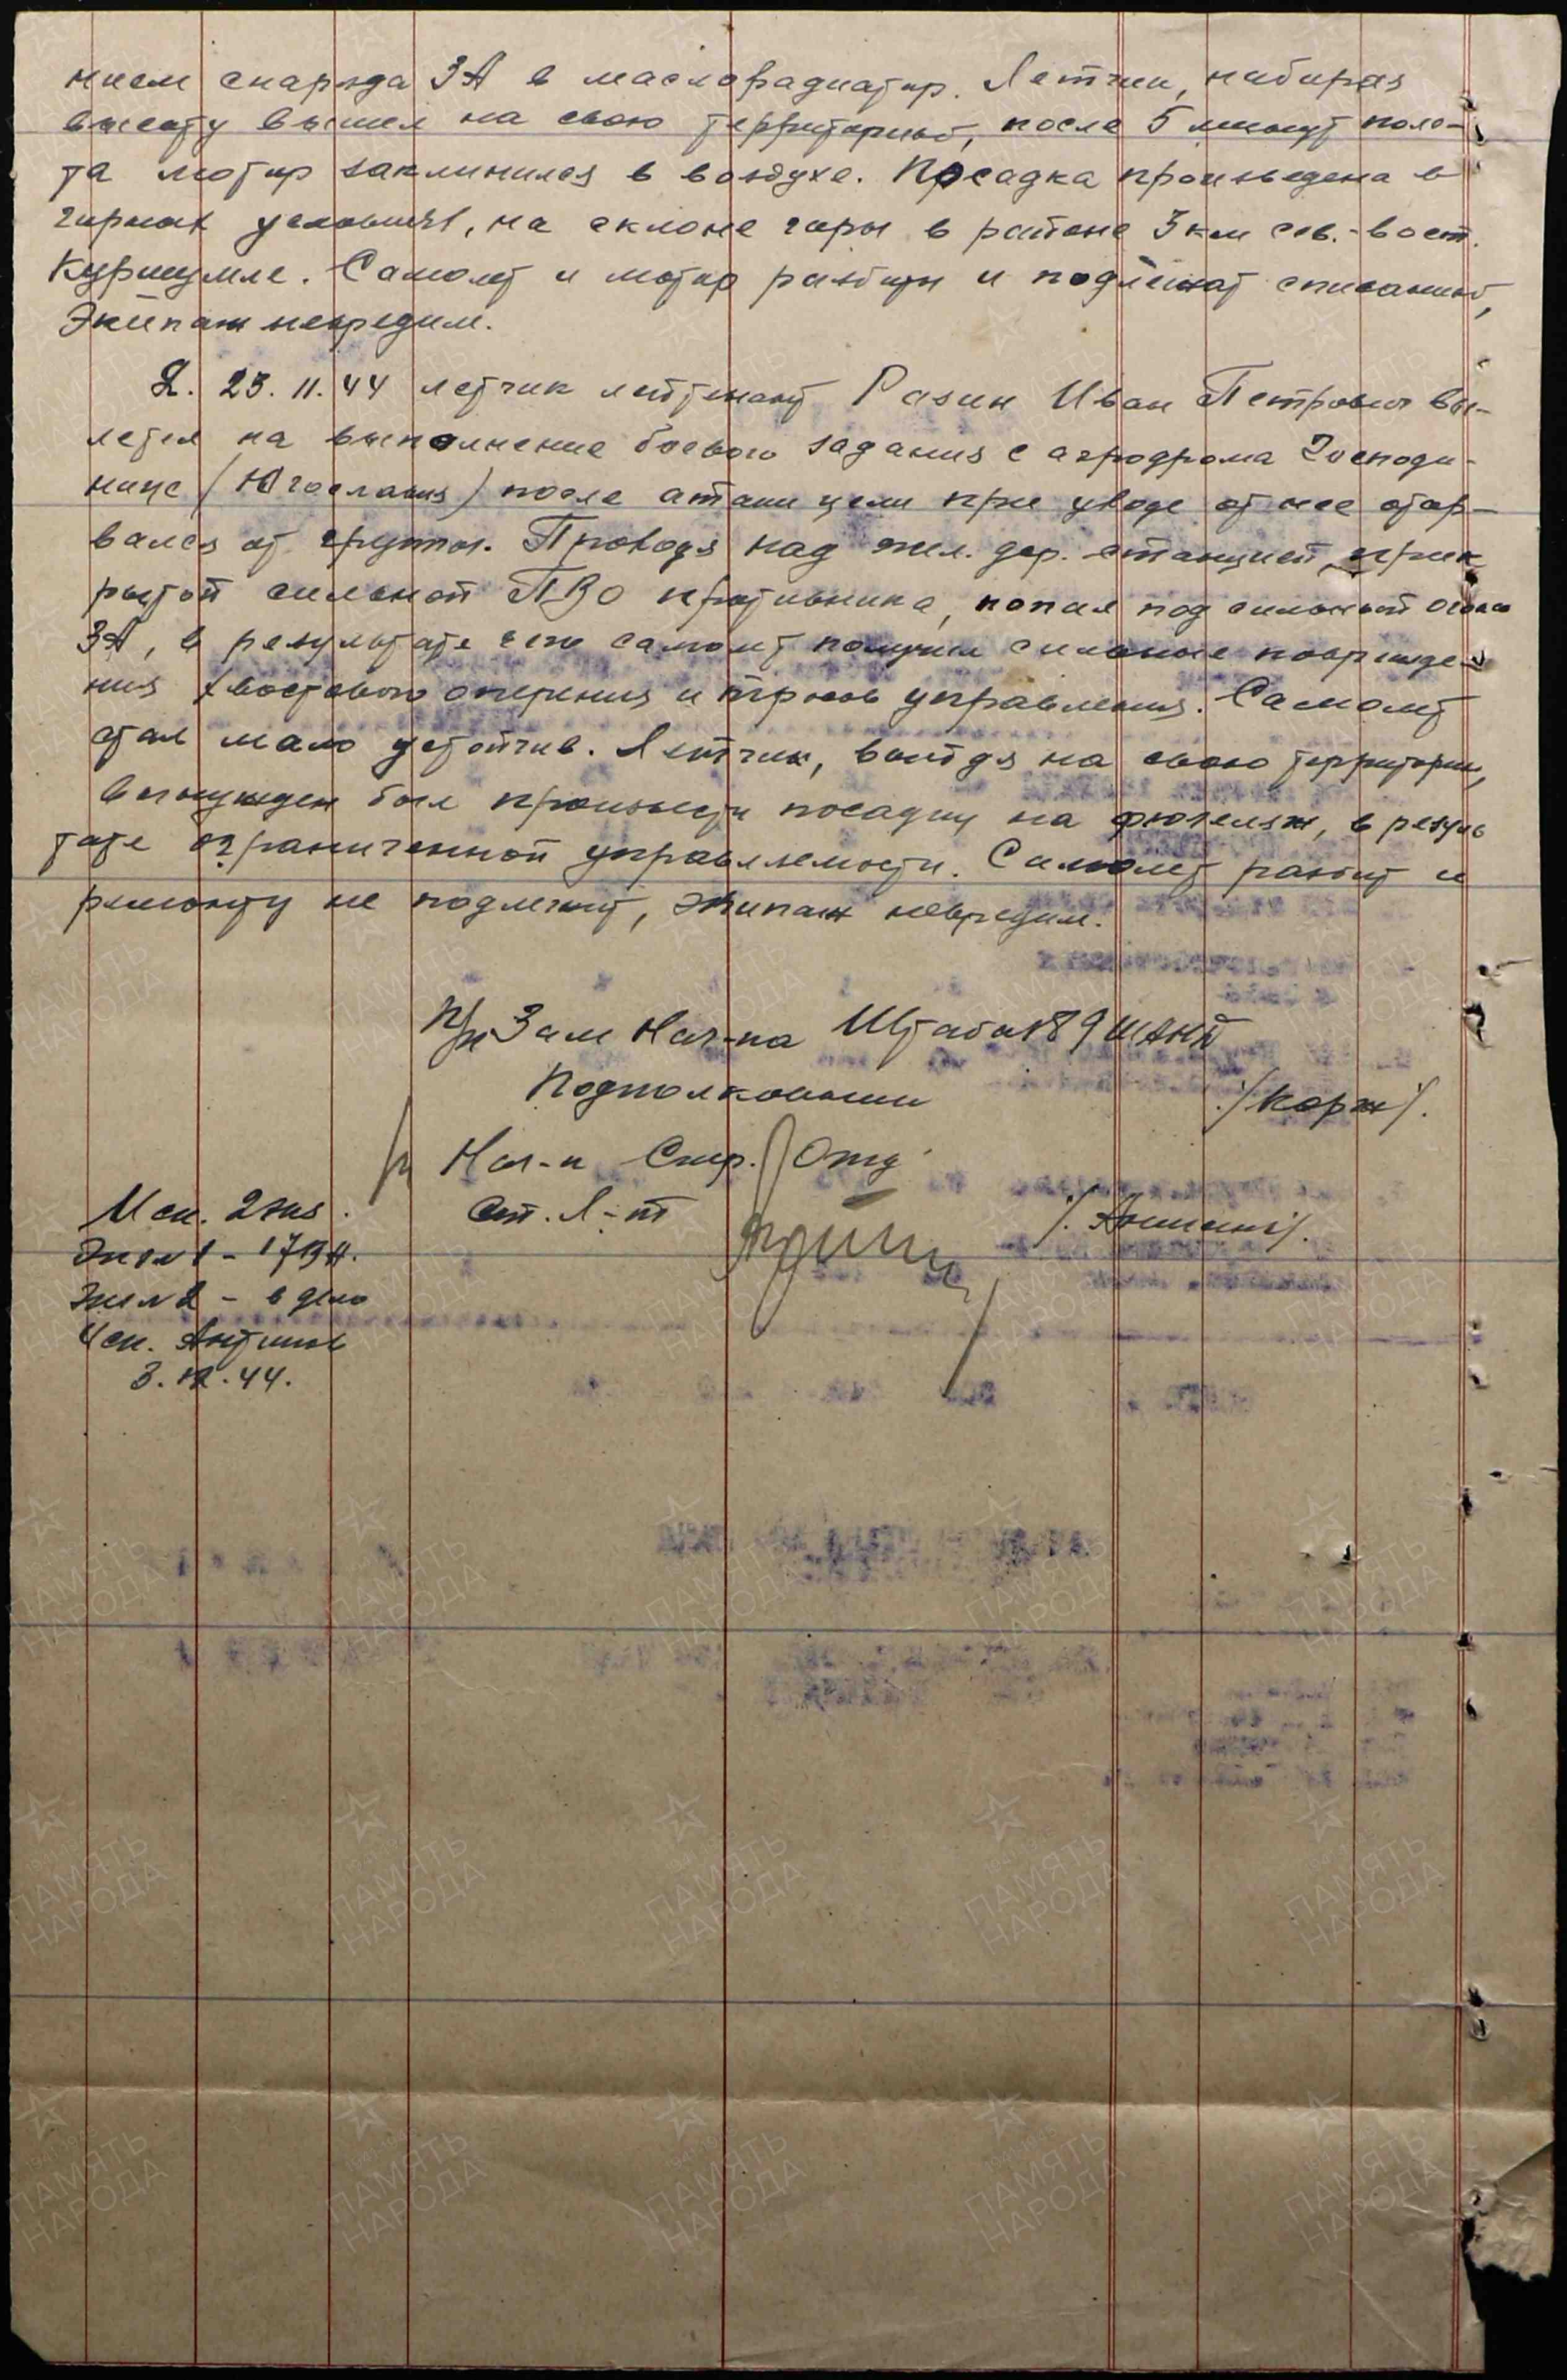 нием снаряда ЗА в маслорадиатор. Летчик, набирая
высоту вышел на свою территорию, после 5 минут поле-
та мотор заклинился в воздухе. Посадка произведена в
горных условиях, на склоне горы в районе 3 км сев.-вост.
Куршумле. Самолет и мотор разбиты и подлежат списанию,
Экипаж невредим.
2. 23.11.44 летчик лейтенант Разин Иван Петрович вы-
летел на выполнение боевого задания с аэродрома Господи-
нице (Югославия) после атаки цели при уводе от нее отор-
вался от группы. Проходя над жел. дор. станцией, прик
рытой сильной ПВО противника, попал под сильный огонь
ЗА, в результате чего самолет получил сильные поврежде-
ния хвостового оперения и тросов управления. Самолет
стал мало устойчив. Летчик, выйдя на свою территорию,
вынужден был произвести посадку на фюзеляж, в резуль
тате ограниченной управляемости. Самолет разбит и
ремонту не подлежит, экипаж невредим.
Зам Нач-ка Штаба 189 ШАНД
Подполковник /Корж/.
Нач-к Стр. Отд.
Ст. Л-т
Исп. 2 экз.
Экз №1 - 17ВА.
Экз №2 - в дело
Исп. Антипов
3.12.44.
ПАМЯТЬ
НАРОДА